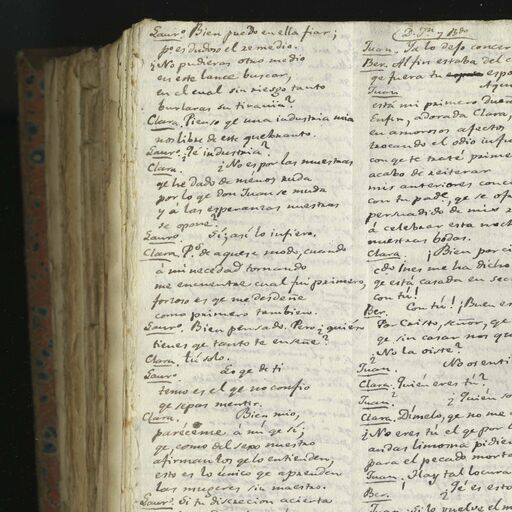 Lauro Bien puedo en ella fiar;
p.o es dudoso el remedio.
¿No pudieras otro medio
en este lance buscar,
en el cual sin riesgo tanto
burlaras su tirania?
Clara. Pienso qe una industria mia
nos libre de este quebranto.
Lauro. ¿Qe industria?
Clara. ¿No es por las muestras
qe he dado de menos ruda
por lo qe don Juan se muda
y a las esperanzas nuestras
se opone?
Lauro Sí; así lo infiero.
Clara. P.s de aquese modo, cuando
á mi necedad tornando
me encuentre cual fuí primero,
forzoso es qe me desdeñe
como primero tambien.
Lauro. Bien pensado. Pero ¿quién
tienes qe tanto te enseñe?
Clara. Tú solo.
Lauro Eso qe de ti
temo es el qe no confio
qe sepas mentir.
Clara. Bien mio,
paréceme, á mí qe sí;
qe, como del sexo nuestro
afirman los qe lo entienden,
esto es lo único qe aprenden
las mugeres sin maestro.
Lauro. Si tu discrecion acierta
(D. Jn y Bdo
Juan. Ya lo dejo concer
Ber. Al fin estaba del c
qe fuera tu espos
Juan Aqu
está mi primero dueñ
Enfin, adorada Clara,
en amorosos afectos
trocando el odio infu
con qe te traté prime
acabo de reiterar
mis anteriores conc
con tu pade, qe se of
persuadido de mis r
á celebrar esta noch
nuestras bodas.
Clara. ¡Bien por ci
cdo Ines me ha dicho
qe está casada en sec
con tú!
Ber. Con tú! ¡Buen es
Por Cristo, señor, qe
qe sin casar nos qu
¿No la oiste?
Juan. No s enti
Clara. ¿Quién eres tú?
Juan. ¿Quién so
Clara. Dímelo, qe no me a
¿No eres tú el qe por l
andas limosna pidien
para el pecado morta
Juan. Hay tal locura
Ber. ¿Y es esto
Juan. Si lo vuelve el m